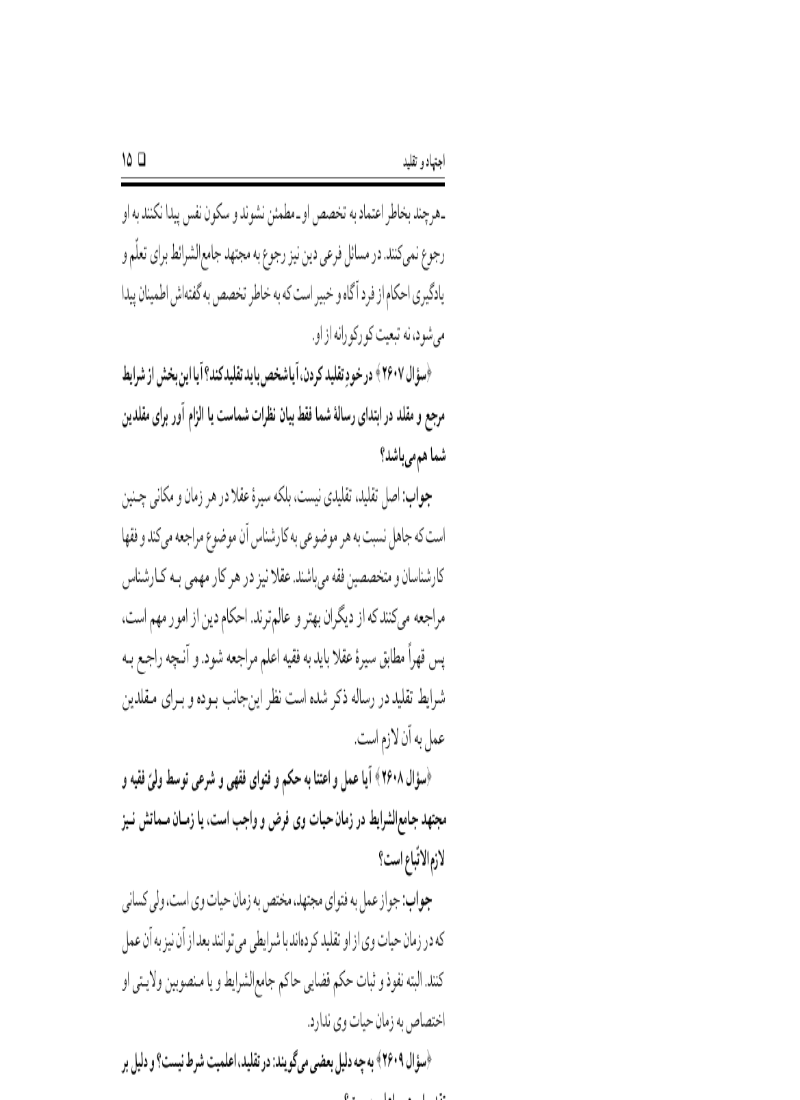 اجتهاد و تقلید □ ۱۵
ـ هرچند بخاطر اعتماد به تخصص او ـ مطمئن نشوند و سکون نفس پیدا نکنند به او
رجوع نمی‌کنند. در مسائل فرعی دین نیز رجوع به مجتهد جامع‌الشرائط برای تعلّم و
یادگیری احکام از فرد آگاه و خبیر است که به خاطر تخصص به گفته‌اش اطمینان پیدا
می‌شود، نه تبعیت کورکورانه از او.
﴿سؤال ۲۶۰۷﴾ در خودِ تقلید کردن، آیا شخص باید تقلید کند؟ آیا این بخش از شرایط
مرجع و مقلد در ابتدای رسالهٔ شما فقط بیان نظرات شماست یا الزام آور برای مقلدین
شما هم می‌باشد؟
جواب: اصل تقلید، تقلیدی نیست، بلکه سیرهٔ عقلا در هر زمان و مکانی چنین
است که جاهل نسبت به هر موضوعی به کارشناس آن موضوع مراجعه می‌کند و فقها
کارشناسان و متخصصین فقه می‌باشند. عقلا نیز در هر کار مهمی به کارشناس
مراجعه می‌کنند که از دیگران بهتر و عالم‌ترند. احکام دین از امور مهم است،
پس قهراً مطابق سیرهٔ عقلا باید به فقیه اعلم مراجعه شود. و آنچه راجع به
شرایط تقلید در رساله ذکر شده است نظر این‌جانب بوده و برای مقلدین
عمل به آن لازم است.
﴿سؤال ۲۶۰۸﴾ آیا عمل و اعتنا به حکم و فتوای فقهی و شرعی توسط ولیّ فقیه و
مجتهد جامع‌الشرایط در زمان حیات وی فرض و واجب است، یا زمان مماتش نیز
لازم‌الاتّباع است؟
جواب: جواز عمل به فتوای مجتهد، مختص به زمان حیات وی است، ولی کسانی
که در زمان حیات وی از او تقلید کرده‌اند با شرایطی می‌توانند بعد از آن نیز به آن عمل
کنند. البته نفوذ و ثبات حکم قضایی حاکم جامع‌الشرایط و یا منصوبین ولایتی او
اختصاص به زمان حیات وی ندارد.
﴿سؤال ۲۶۰۹﴾ به چه دلیل بعضی می‌گویند: در تقلید، اعلمیت شرط نیست؟ و دلیل بر